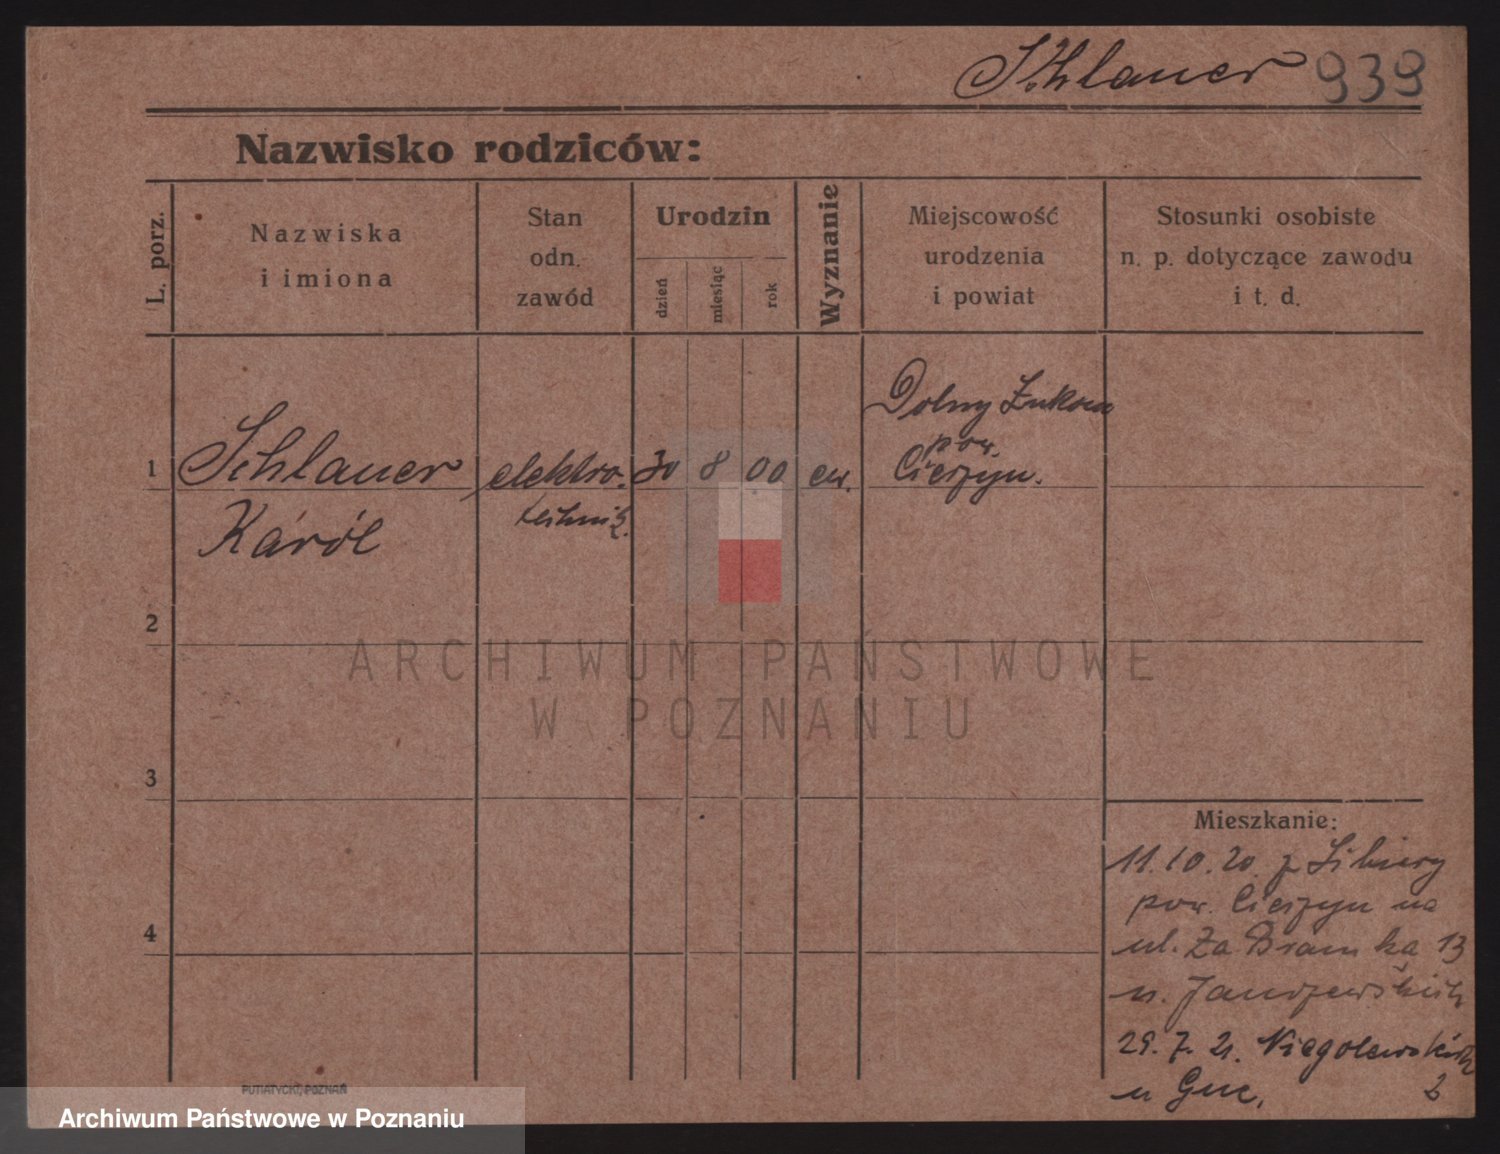 Schlauer 939
Nazwisko rodziców:
L. porz.
Nazwiska
i imiona
Stan
odn.
zawód
Urodzin
dzień
miesiąc
rok
Wyznanie
Miejscowość
urodzenia
i powiat
Stosunki osobiste
n. p. dotyczące zawodu
i t. d.
1 Schlauer elektro- 30 8 00 ew. Dolny Żuków
pow.
Cieszyn.
Karól technik.
2
3
4
ARCHIWUM PAŃSTWOWE
W POZNANIU
Mieszkanie:
11.10.20. z
pow. Cieszyn na
ul. Za Bramką 13
u. Janszewskich
29.7.21. Niegolewskich
u 2
PUTIATYCKI, POZNAŃ
Archiwum Państwowe w Poznaniu